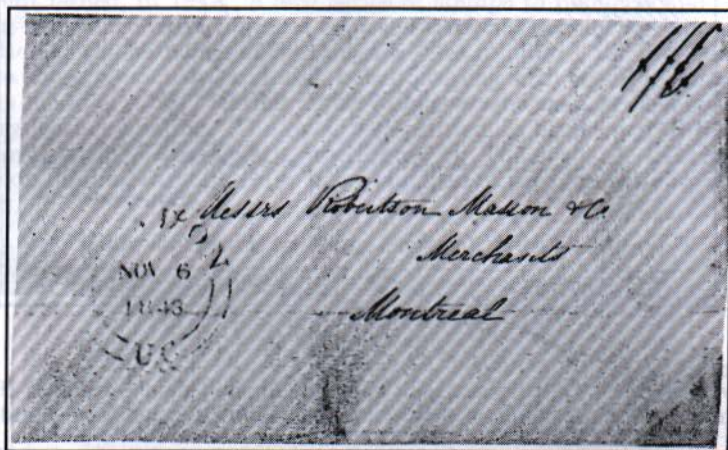 Messrs Robertson Masson & Co
Merchants
Montreal
NOV 6
1843